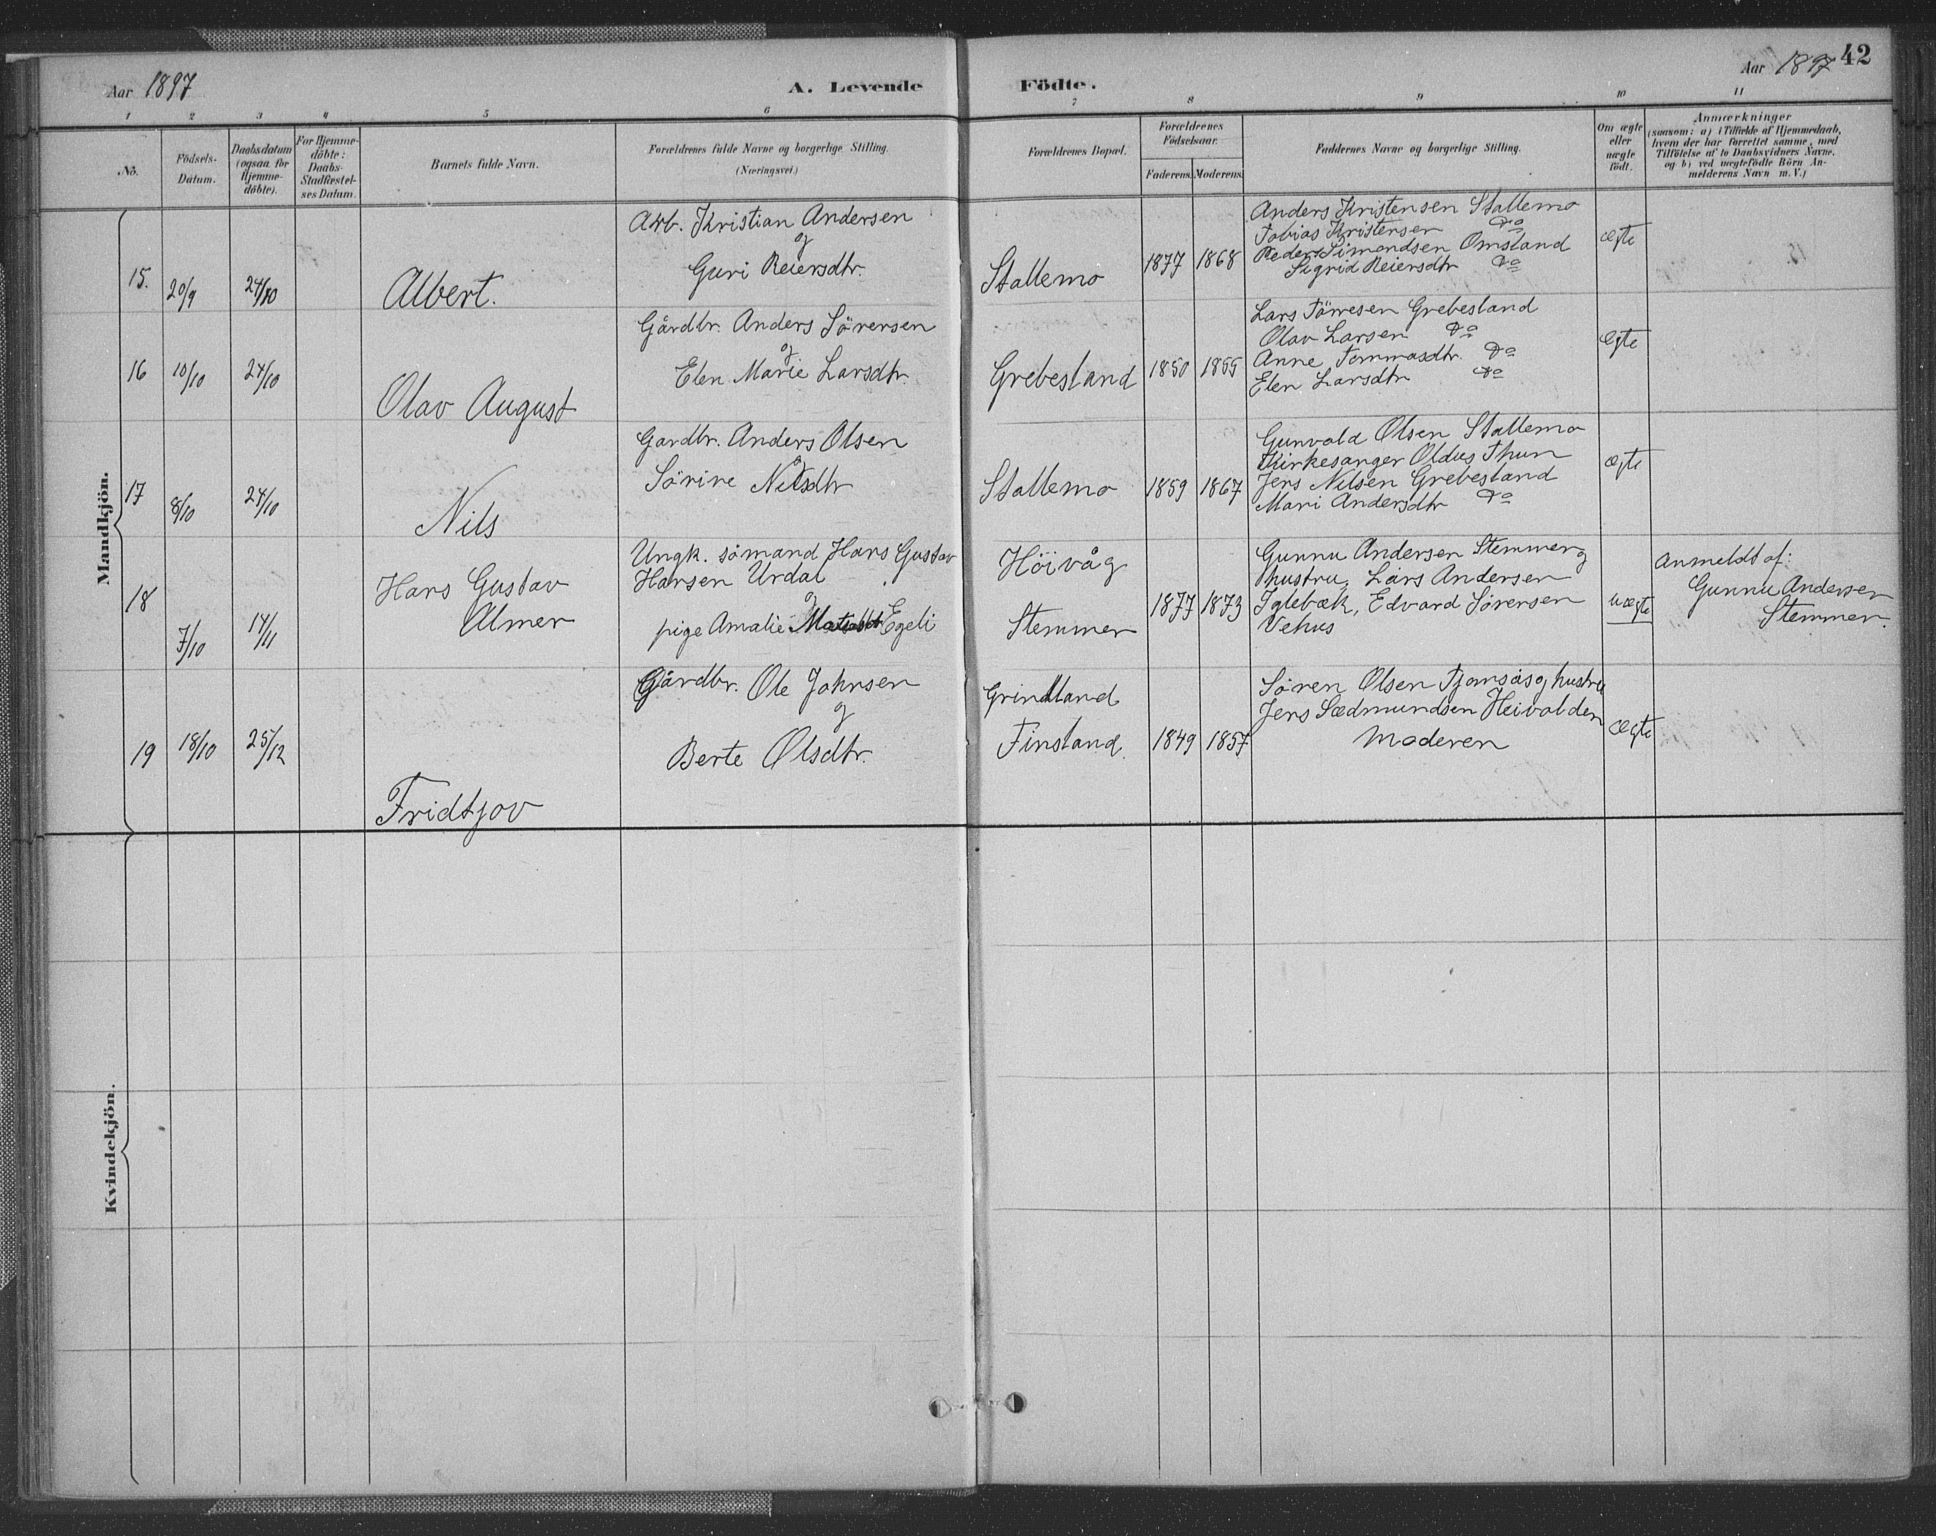 Aar 1897
A. Levende Födte.
Aar 1897 42
1 2 3 4 5 6 7 8 9 10 11
No.
Födsels-Datum.
Daabsdatum (ogsaa for Hjemme-döbte).
For Hjemme-döbte: Daabs-Stadfæstel-ses Datum.
Barnets fulde Navn.
Forældrenes fulde Navne og borgerlige Stilling.
(Næringsvei.)
Forældrenes Bopæl.
Forældrenes Födselsaar.
Faderens. Moderens.
Faddernes Navne og borgerlige Stilling.
Om ægte eller uægte födt.
Anmærkninger
(saasom: a) i Tilfælde af Hjemmedaab,
hvem der har forrettet samme, med
Tilföielse af to Daabsvidners Navne,
og b) ved uægtefödte Börn An-
melderens Navn m. V.)
Mandkjön.
15. 20/9 24/10 Albert.
Arb. Kristian Andersen
og
Guri Reiersdtr.
Stallemo 1877 1868
Anders Kristensen Stallemo
Tobias Kristensen Do
Peder Simondsen Omsland
Sigrid Reiersdtr Do
ægte
16 10/10 24/10 Olav August
Gårdbr. Anders Sörensen
og
Elen Marie Larsdtr.
Grebesland 1850 1855
Lars Törresen Grebesland
Olav Larsen Do
Anne Tommasdtr. Do
Elen Larsdtr Do
ægte
17 8/10 24/10 Nils
Gardbr. Anders Olsen
og
Sörine Nilsdtr
Stallemo 1859 1867
Gunvald Olsen Stallemo
Kirkesanger Oldus Thun
Jens Nilsen Grebesland
Mari Andersdtr Do
ægte
18 7/10 14/11 Hans Gustav
Almer
Ungk. sömand Hans Gustav
Hansen Urdal
og
pige Amalie Egeli
Höivåg
Stemmen 1877 1873
Gunnu Andersen Stemmen og
hustru, Lars Andersen
Iglebæk, Edvard Sörensen
Vehus
uægte
Anmeldt af:
Gunnu Andersen
Stemmen.
19 18/10 25/12 Fridtjov
Gårdbr. Ole Johnsen
og
Berte Olsdtr.
Grindland
Finsland. 1849 1857
Sören Olsen Tjomsås og hustru
Jens Sædmundsen Heivolden
Moderen
ægte
Kvindekjön.